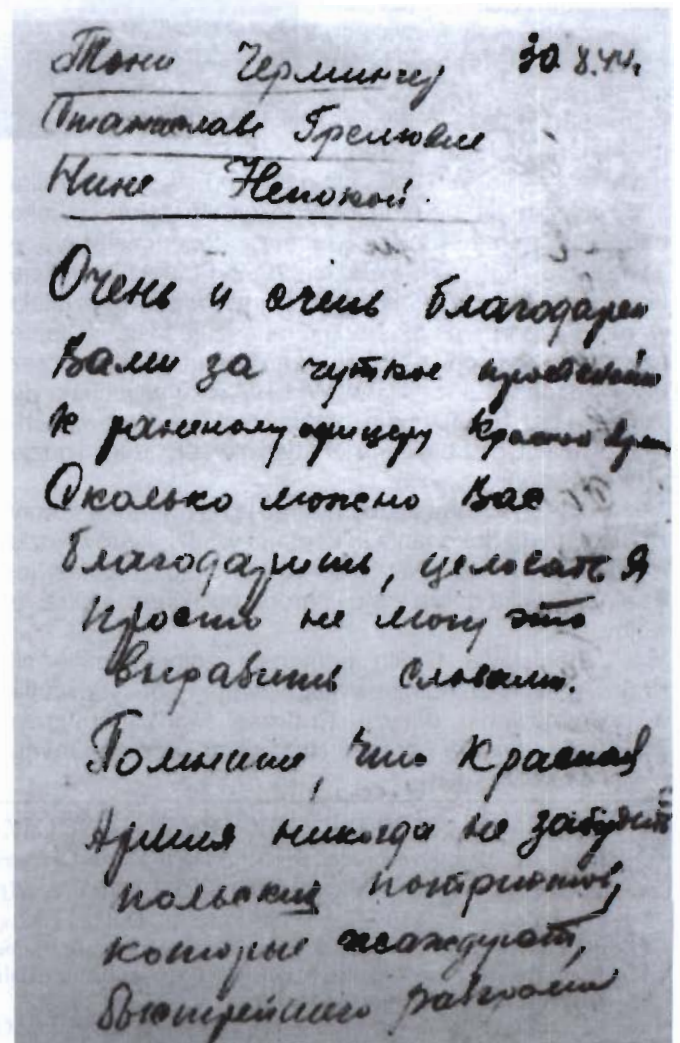 Тони Чермингу 30.8.44.
Станиславе Грелювне
Нине Непокой.
Очень и очень благодарен
Вами за чуткое
к раненому офицеру Красной Арми
Сколько можно Вас
благодарить, целовать Я
просто не могу это
выразить словами.
Помните, что Красная
Армия никогда не забудит
польских патриотов,
которые жаждут,
быстрейшего разгрома